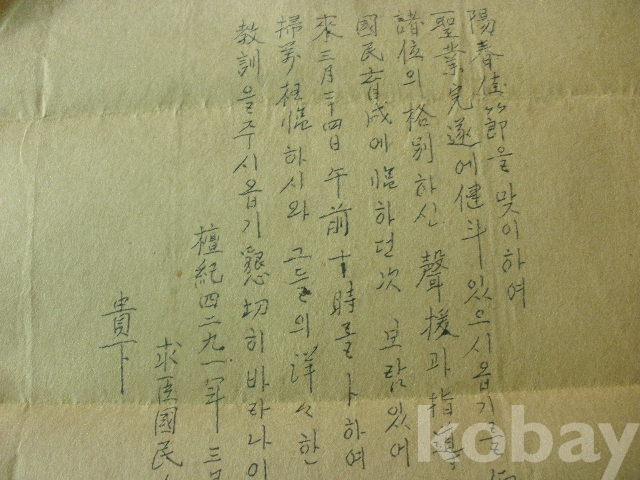 陽春佳節을 맞이하여
聖業完遂에 健斗 있으시옵기를
諸位의 格別하신 聲援과 指導
國民育成에 臨하던次 보람있어
來 三月 二十四日 午前 十時를 卜하여
掃萬枉臨하시와 그들의 洋々한
敎訓을 주시옵기 懇切히 바라나이
檀紀四二九一年 三月
求匡國民
貴下
kobay